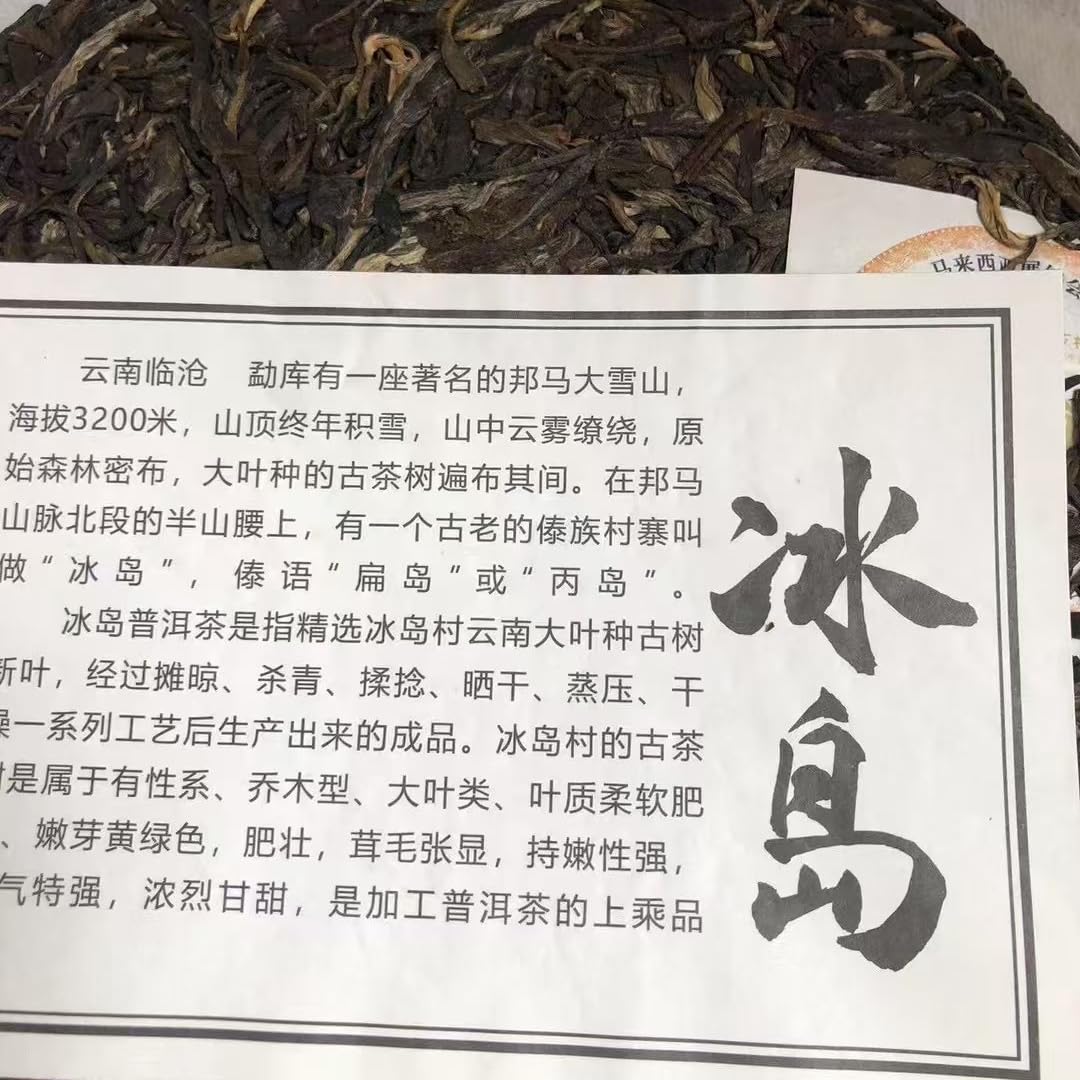 马来西亚展
云南临沧 勐库有一座著名的邦马大雪山，
海拔3200米，山顶终年积雪，山中云雾缭绕，原
始森林密布，大叶种的古茶树遍布其间。在邦马
山脉北段的半山腰上，有一个古老的傣族村寨叫
做“冰岛”，傣语“扁岛”或“丙岛”。
冰岛普洱茶是指精选冰岛村云南大叶种古树
新叶，经过摊晾、杀青、揉捻、晒干、蒸压、干
燥一系列工艺后生产出来的成品。冰岛村的古茶
树是属于有性系、乔木型、大叶类、叶质柔软肥
、嫩芽黄绿色，肥壮，茸毛张显，持嫩性强，
气特强，浓烈甘甜，是加工普洱茶的上乘品
冰岛